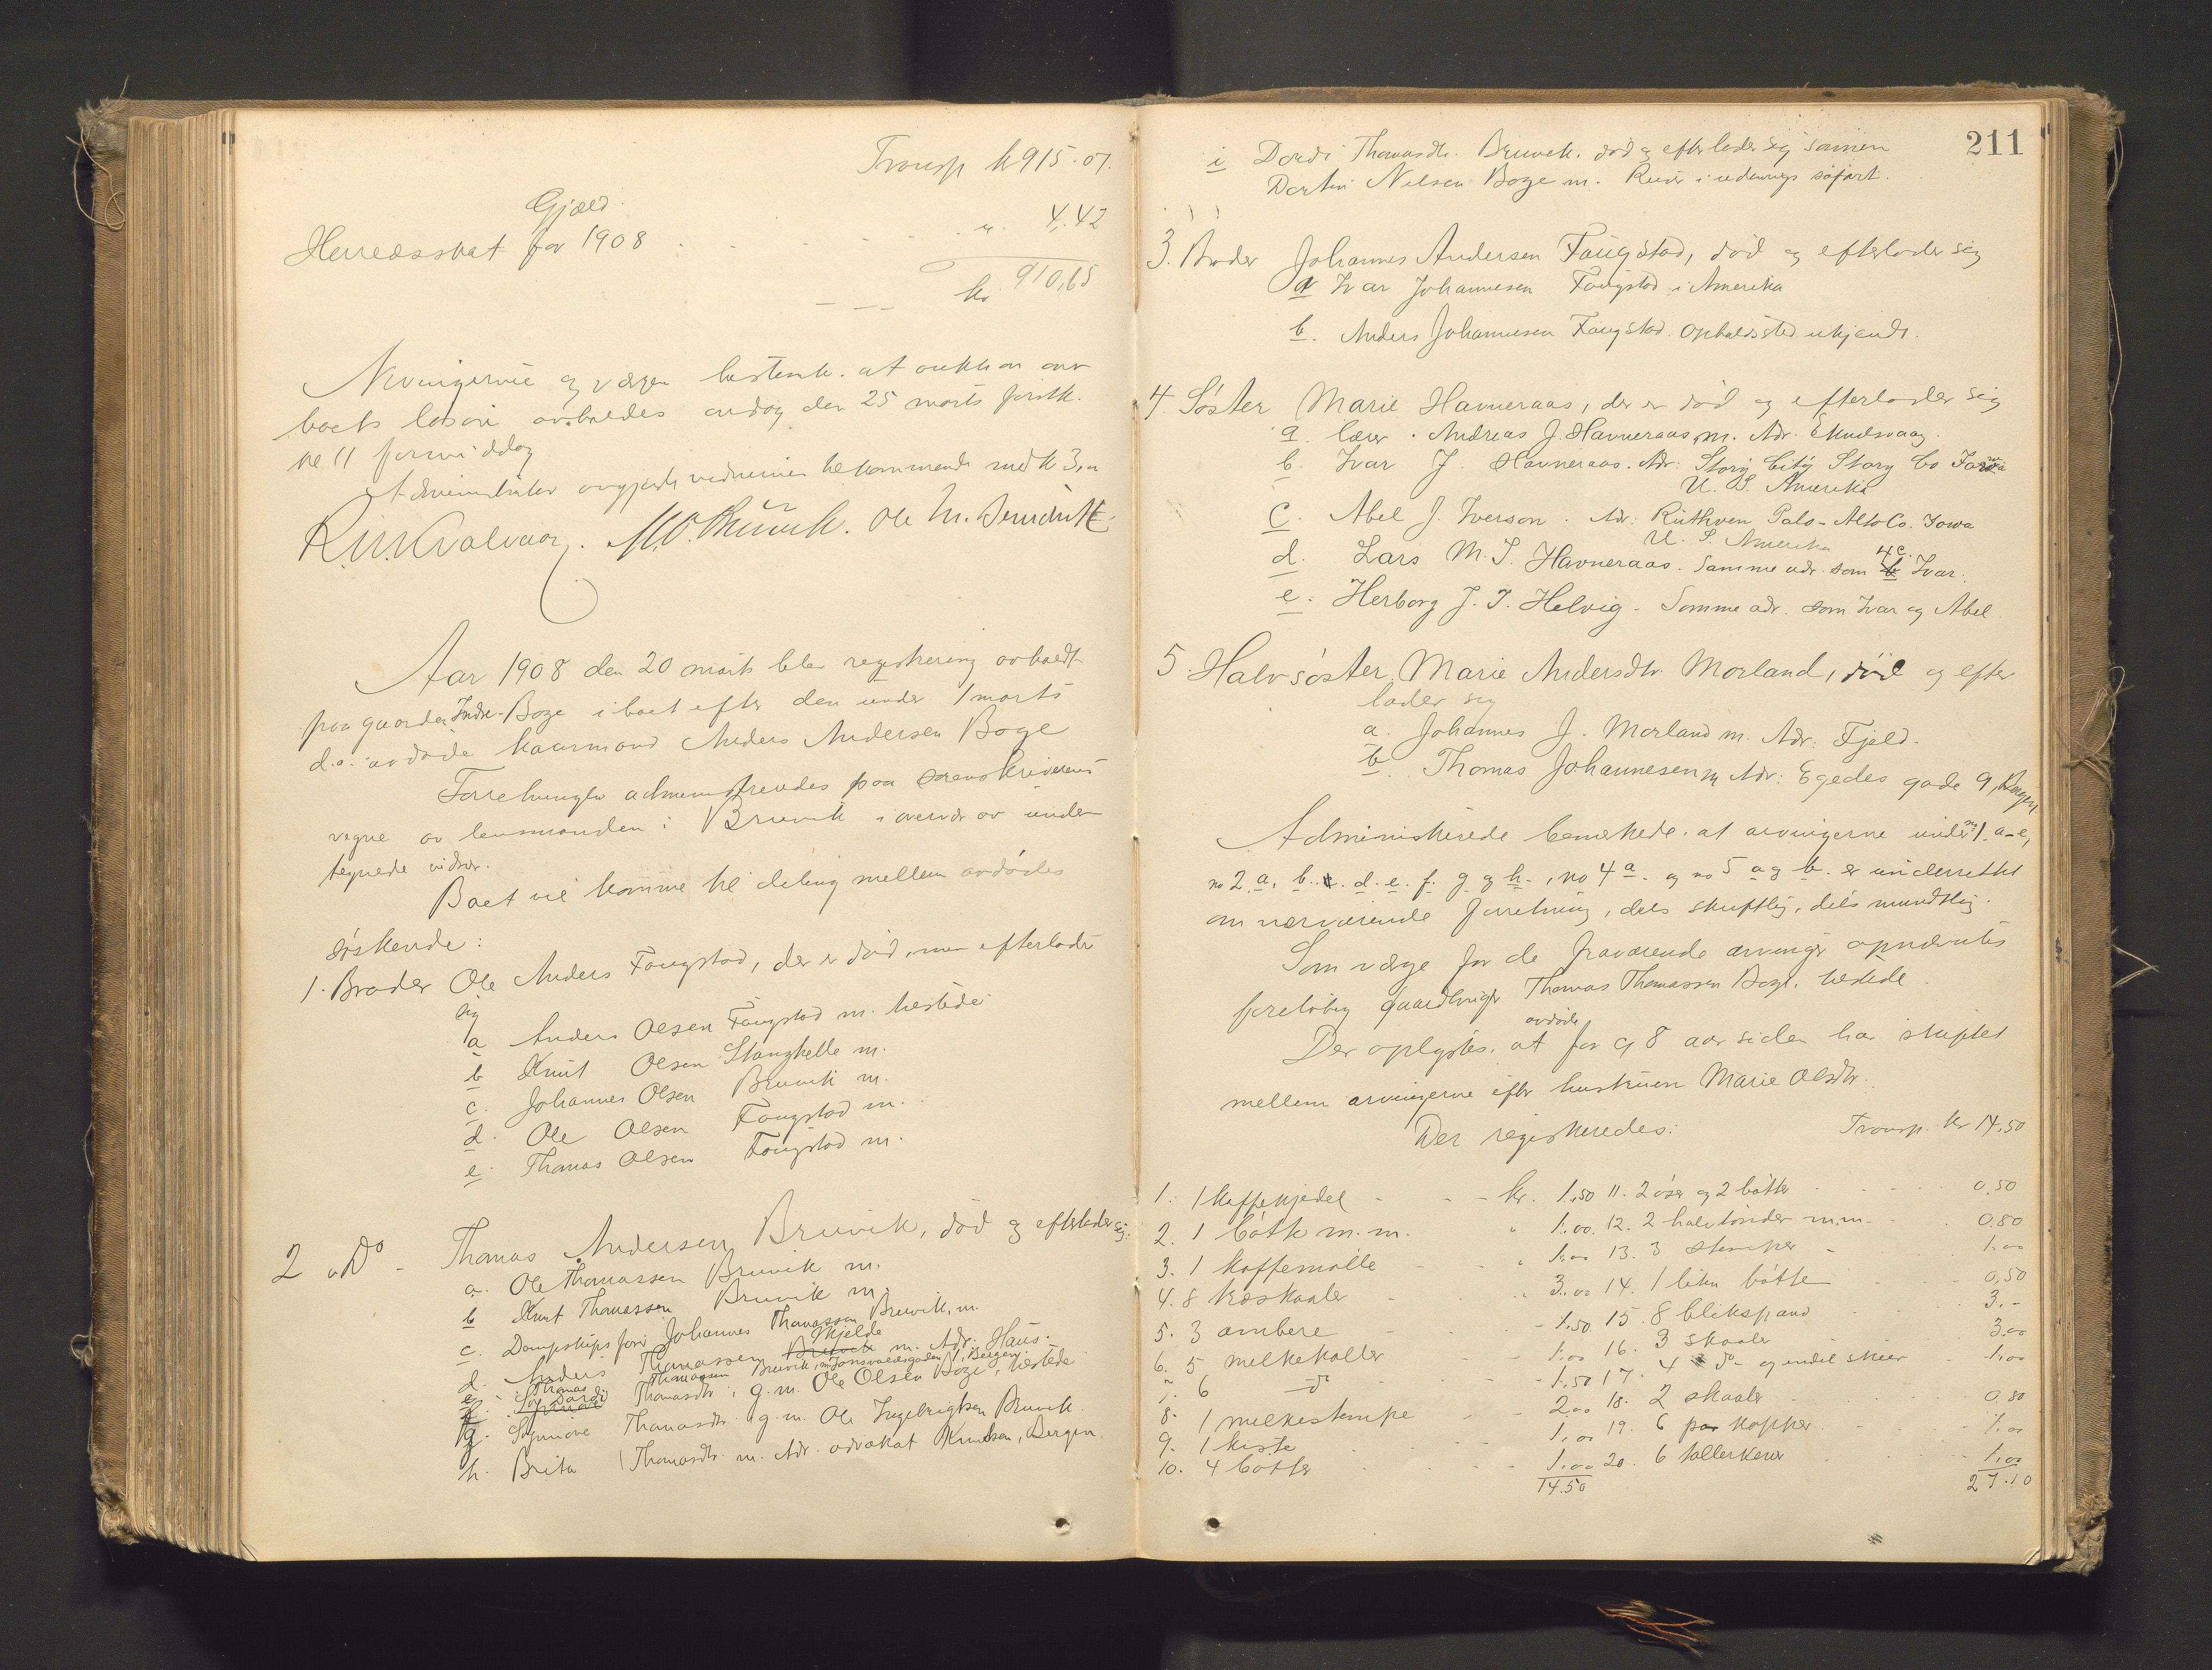 Transp kr 915.07.
Gjæld.
Herredsskat for 1908 . . . . . . " 4.42
kr 910,65
Arvingerne og værgen bestemte at auktion over
boets løsøre avholdes onsdag den 25 marts førstk.
kl 11 formiddag
Administrator avgjorde vidnernes tilkommende med k 3,00
Ole M.
Aar 1908 den 20 marts blev registrering avholdt
paa gaarden Indre-Boge i boet efter den under 1 marts
d.a. avdøde kaarmand Anders Andersen Boge
Forretningen administreredes paa sorenskriverens
vegne av lensmanden i Bruvik i overvær av under-
tegnede vidner.
Boet vil komme til deling mellem avdødes
søskende:
1. Broder Ole Anders Fougstad, der er død, men efterlader
sig
a Anders Olsen Fougstad m. tilstede
b Knut Olsen Stanghelle m.
c. Johannes Olsen Bruvik m.
d. Ole Olsen Fougstad m.
e. Thomas Olsen Fougstad m.
2 Do - Thomas Andersen Bruvik, død og efterlader sig:
a. Ole Thomassen Bruvik m.
b Knut Thomassen Bruvik m.
c. Dampskipsfører Johannes Thomassen Bruvik, m.
d. Anders Thomassen Bruvik Mjelde m. Adr. Haus.
e. Thomas Thomassen Bruvik, m. Jonsvoldsgaden 1, Bergen.
f. Dordi Thomasdtr. g. m. Ole Olsen Boge, tilstede
g. Synnøve Thomasdtr. g. m. Ole Ingebrigtsen Bruvik.
h. Brita Thomasdtr. m. Adr. advokat Knudsen, Bergen
211
i Dordi Thomasdtr. Bruvik. død og efterlader sig sønnen
Martin Nilsen Boge m. Reiser i udenrigs søfart.
3. Broder Johannes Andersen Fougstad, død og efterlader sig
a Ivar Johannesen Fougstad i Amerika
b. Anders Johannesen Fougstad. Opholdssted ukjendt.
4. Søster Marie Havneraas, der er død og efterlader sig
a. lærer. Andreas J. Havneraas, m. Adr. Eknesvaag.
b. Ivar J. Havneraas. Adr: Story City Story Co Iowa
U. S. Amerika
c. Abel J. Iverson. Adr: Ruthven Palo-Alto Co. Iowa
U. S. Amerika
d. Lars M. J. Havneraas. Samme adr. som b 4c. Ivar.
e. Herborg J. T. Helvig. Samme adr. som Ivar og Abel
5. Halvsøster. Marie Andersdtr. Morland, død og efter
lader sig
a. Johannes J. Morland m. Adr: Fjeld.
b. Thomas Johannesen m Adr: Egedes gade 9, Bergen
Administrerede bemerkede at arvingerne under no 1. a-e,
no 2. a, b. c. d. e. f. g og h., no 4 a. og no 5 a og b. er underrettet
om nærværende forretning, dels skriftlig, dels mundtlig.
Som værge for de fraværende arvinger opnævntes
foreløbig gaardbruger Thomas Thomassen Boge. tilstede.
Der oplystes, at avdøde for ca 8 aar siden har skiftet
mellem arvingerne efter hustruen Marie Olsdtr.
Der registreredes: Transp. kr 14,50
1. 1 kaffekjedel - - - kr. 1.50 11. 2 øser og 2 bøtter 0,50
2. 1 bøtte m. m. " 1.00. 12. 2 halvtønder m.m. 0.80
3. 1 kaffemølle - - " 1.00 13. 3 stamper - 1.00
4. 8 træskaaler - " 3.00 14. 1 liten bøtte 0,50
5. 3 ambere - - 1.50 15. 8 blikspand 3.-
6. 5 melkekoller - - 1.00 16. 3 skaaler 3.00
7. 6 -do- - 1.50 17. 4 do - og endel skeer 1.00
8. 1 melkestampe - - 2.00 18. 2 skaaler 0.80
9. 1 kiste 1.00 19. 6 par kopper 1.00
10. 4 bøtter 1.00 20. 6 tallerkener 1.00
14.50 27.10